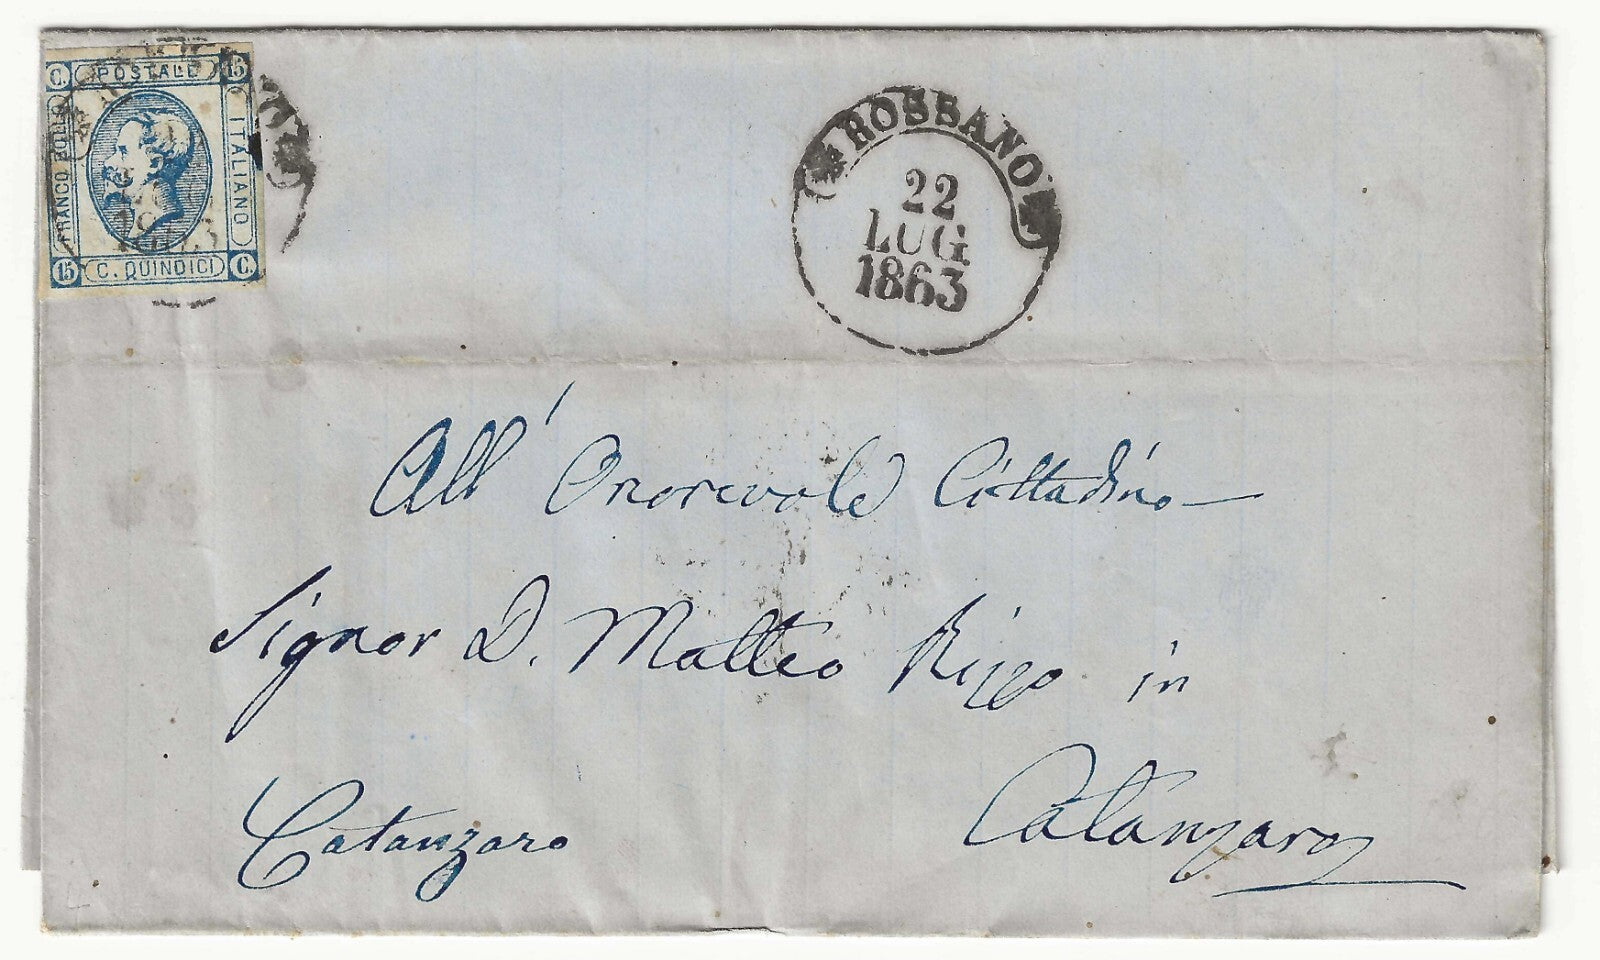 C. POSTALE 15
FRANCO BOLLO
ITALIANO
15 C. QUINDICI C.
1863
ROSSANO
22
LUG
1863
All' Onorevole Cittadino
Signor D. Matteo Rizzo in
Catanzaro Catanzaro